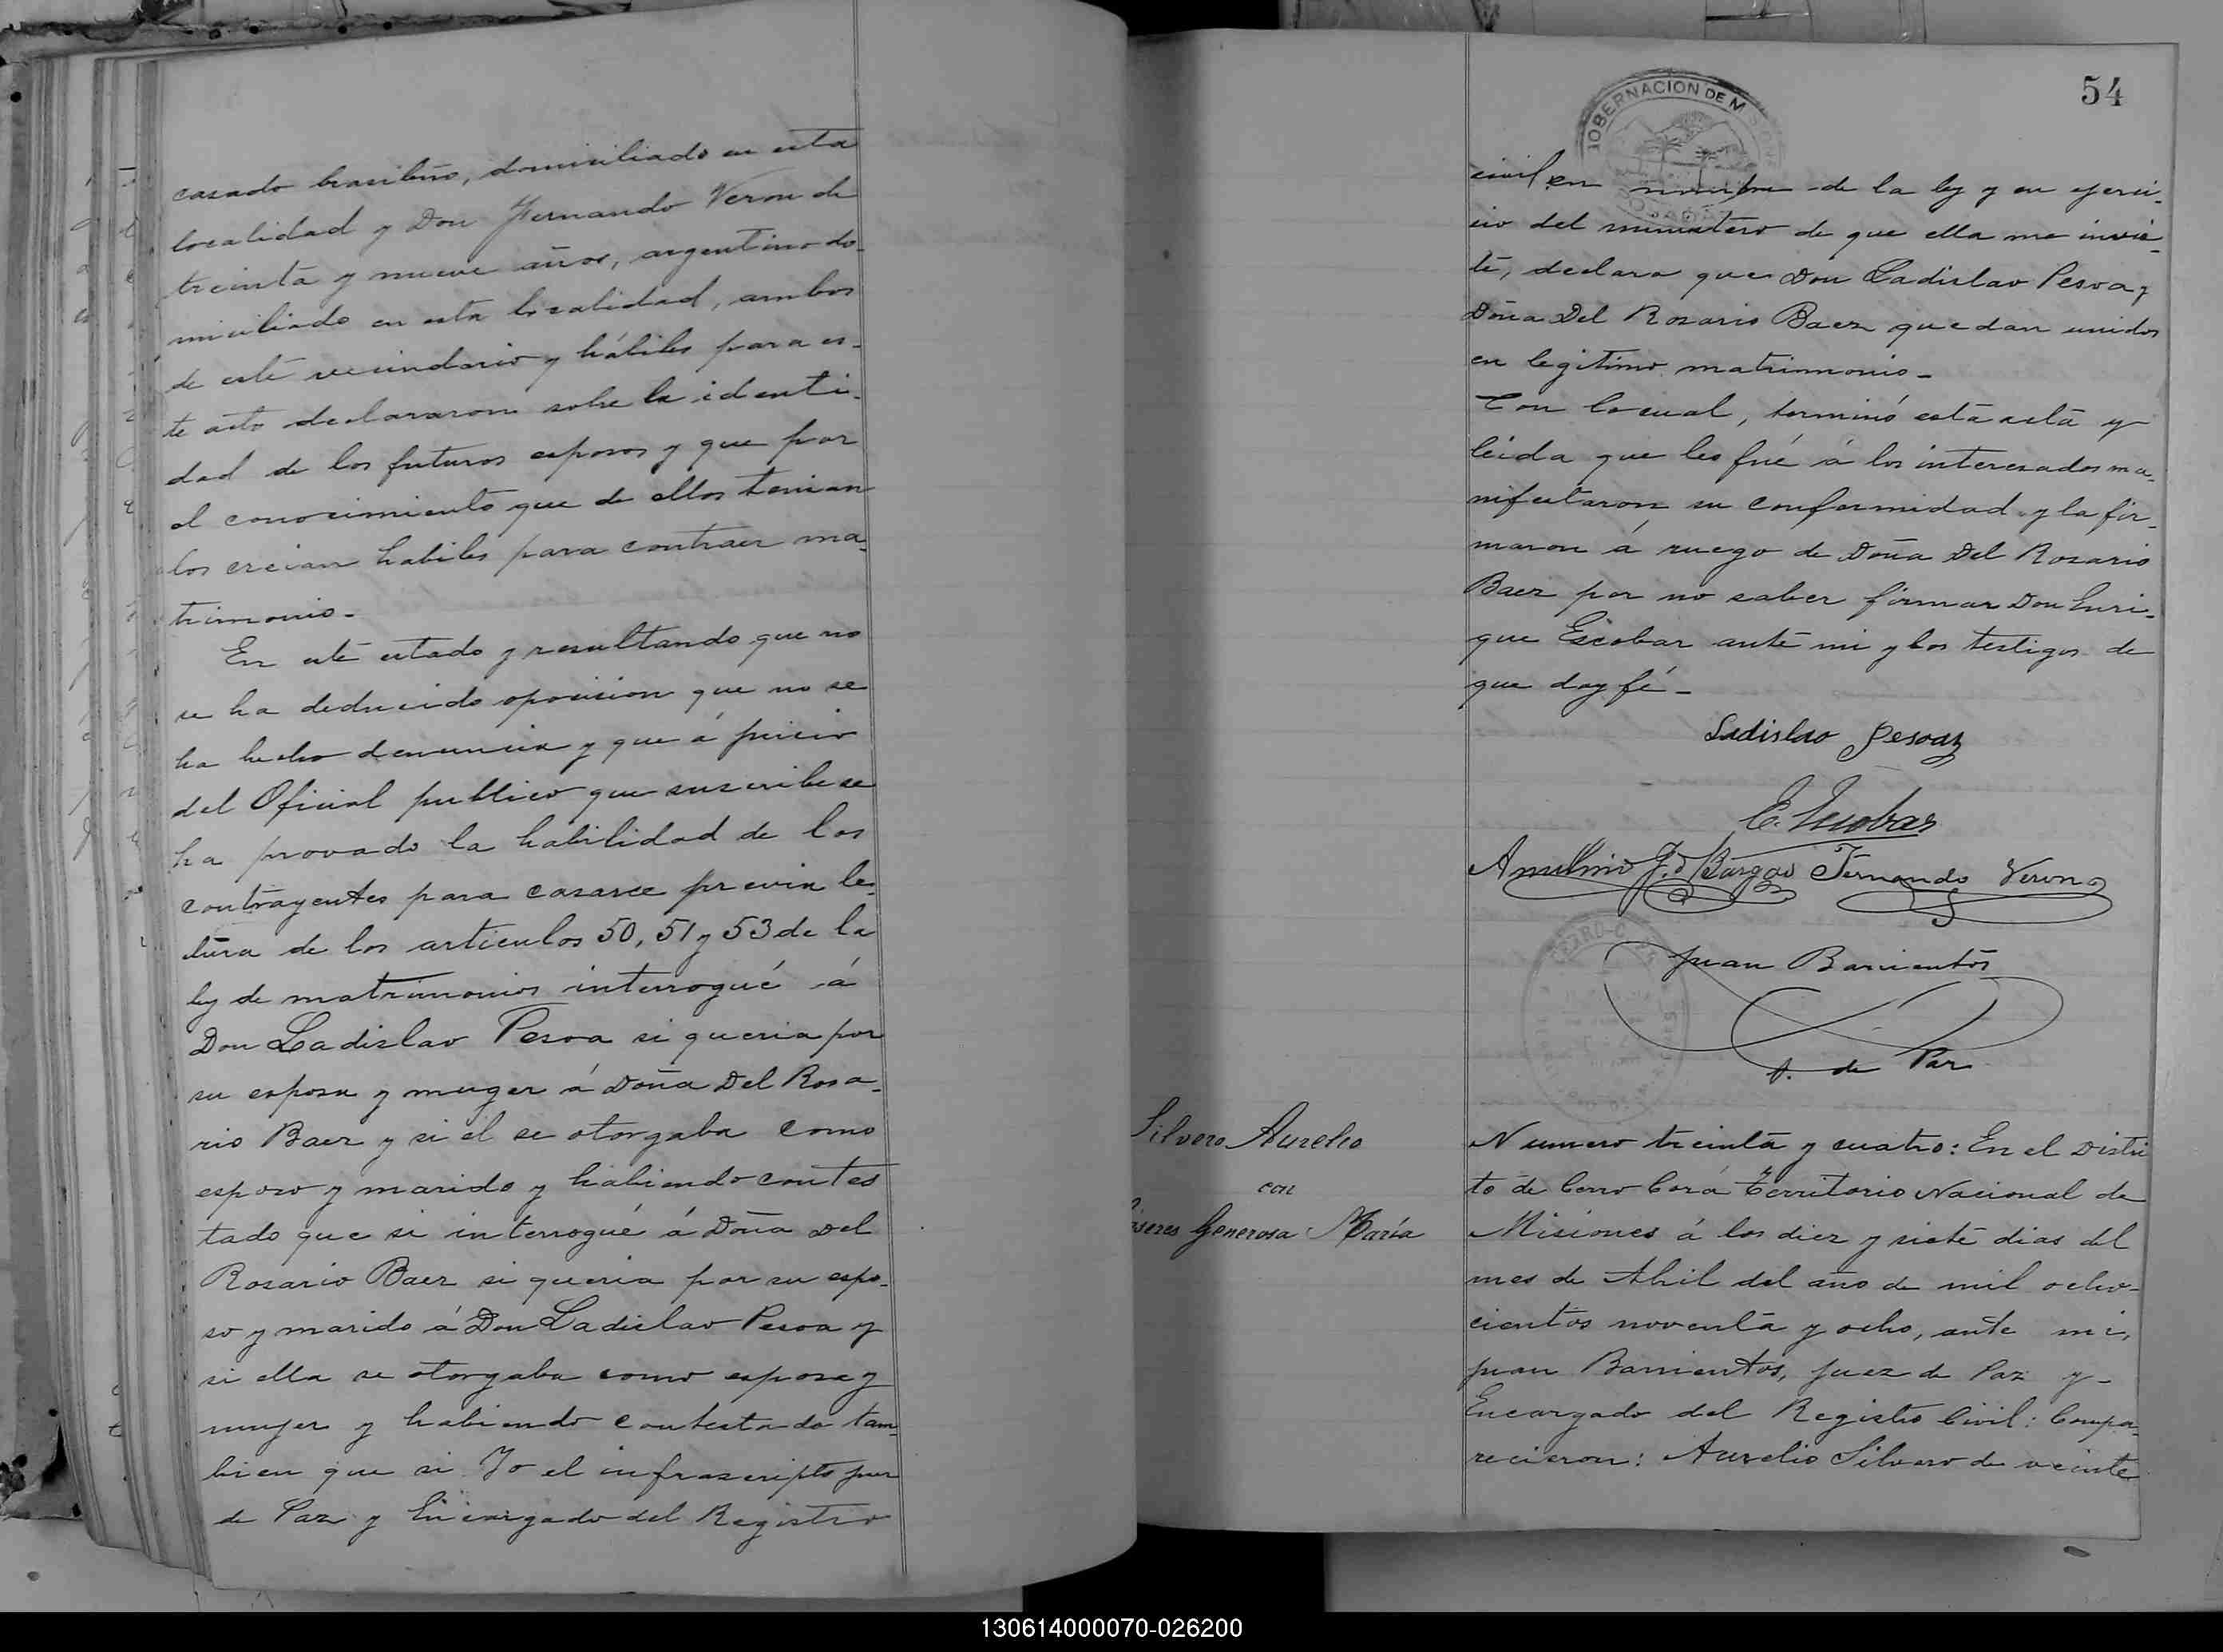 casado brasilero, domiciliado en esta
localidad y Don Fernando Veron de
treinta y nueve años, argentino do-
miciliado en esta localidad, ambos
de este vecindario y hábiles para es-
te acto declararon sobre la identi-
dad de los futuros esposos y que por
el conocimiento que de ellos tenian
los creian habiles para contraer ma-
trimonio-
En este estado y resultando que no
se ha deducido oposicion que no se
ha hecho denuncia y que á juicio
del Oficial publico que suscribe se
ha provado la habilidad de los
contrayentes para casarce previa lec-
tura de los articulos 50, 51 y 53 de la
ley de matrimonios interrogué á
Don Ladislao Pesoa si queria por
su esposa y muger á Doña Del Rosa-
rio Baez y si él se otorgaba como
esposo y marido y habiendo contes
tado que si interrogué á Doña Del
Rosario Baez si queria por su espo-
so y marido á Don Ladislao Pesoa y
si ella se otorgaba como esposa y
mujer y habiendo contestado tam-
bien que si. Yo el infrascripto juez
de Paz y Encargado del Registro
54
GOBERNACION DE MISIONES
POSADAS
civil en nombre de la ley y en ejerci-
cio del ministerio de que ella me invis-
te, declara que Don Ladislao Pesoa y
Doña Del Rosario Baez quedan unidos
en legitimo matrimonio-
Con lo cual, terminó esta acta y
leida que les fué á los interesados ma-
nifestaron su conformidad y la fir-
maron á ruego de Doña Del Rosario
Baez por no saber firmar Don Enri-
que Escobar ante mi y los testigos de
que doy fé-
Ladislao Pesoa
E. Escobar
Burgos Fernando Veron
Juan Barrientos
J. de Paz
Silvero Aurelio
con
Generosa María
Numero treinta y cuatro: En el Distri
to de Cerro Corá Territorio Nacional de
Misiones á los diez y siete dias del
mes de Abril del año de mil ocho-
cientos noventa y ocho, ante mi,
Juan Barrientos, Juez de Paz y-
Encargado del Registro Civil: Compa-
recieron: Aurelio Silvero de veinte
130614000070-026200